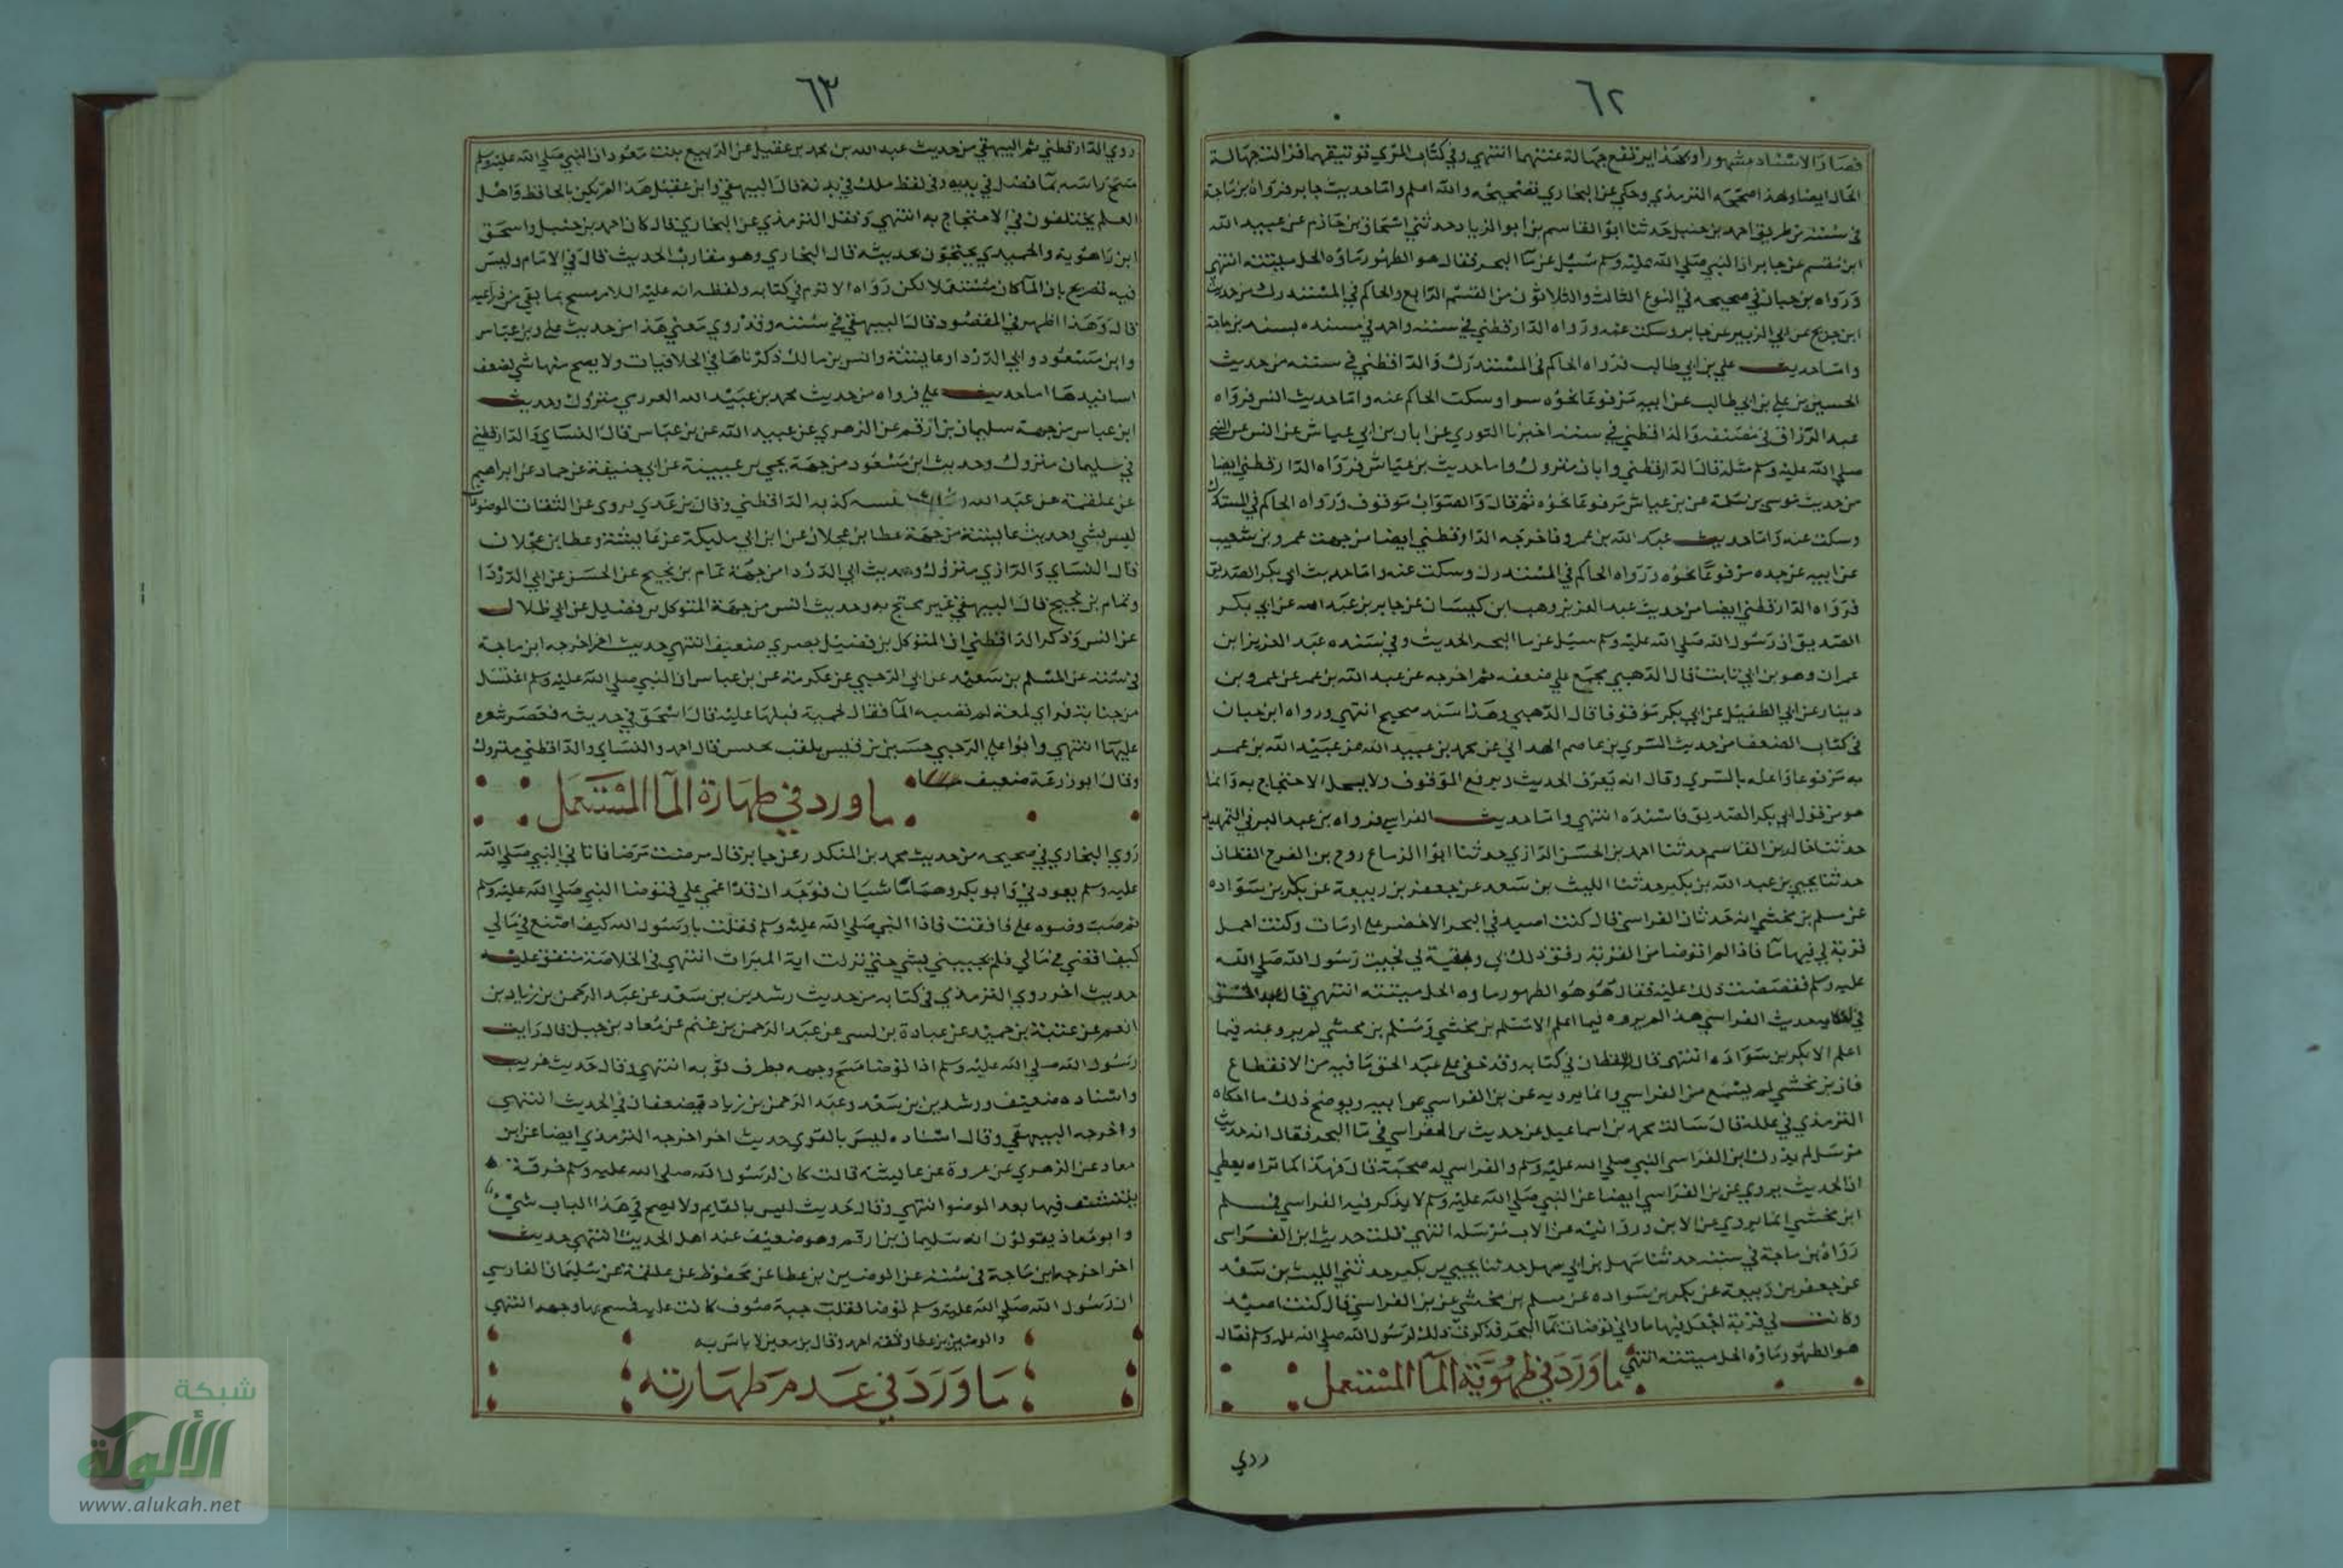 ٦٢
فصار الاسناد مشهورا وبهذا يرتفع جهالة عنهما انتهى وفي كتاب المزي توثيقهما فزالت جهالة
الحال ايضا ولهذا صححه الترمذي وحكي عن البخاري تصحيحه والله اعلم واما حديث جابر فرواه بن ماجة
في سننه من طريق احمد بن حنبل حدثنا ابو القاسم بن ابو الزياد حدثني اسحاق بن حازم عن عبيد الله
ابن مقسم عن جابر ان النبي صلي الله عليه وسلم سيل عن ما البحر فقال هو الطهور ماؤه الحل ميتته انتهى
ورواه بن حبان في صحيحه في النوع الثالث والثلاثون من القسم الرابع والحاكم في المستدرك من حديث
ابن جريج عن ابي الزبير عن جابر وسكت عنه ورواه الدارقطني في سننه واحمد في مسنده بسند بن ماجة
واما حديث علي بن ابي طالب فرواه الحاكم في المستدرك والداقطني في سننه من حديث
الحسين بن علي بن ابي طالب عن ابيه مرفوعا نحوه سوا وسكت الحاكم عنه واما حديث انس فرواه
عبد الرزاق في مصنفه والداقطني في سننه اخبرنا الثوري عن ابان بن ابي عياش عن انس عن النبي
صلي الله عليه وسلم مثله قال الدارقطني وابان متروك واما حديث بن عباس فرواه الدارقطني ايضا
من حديث موسي بن سلمة عن بن عباس مرفوعا نحوه ثم قال والصواب موقوف ورواه الحاكم في المستدرك
وسكت عنه واما حديث عبد الله بن عمرو فاخرجه الدارقطني ايضا من جهت عمرو بن شعيب
عن ابيه عن جده مرفوعا نحوه ورواه الحاكم في المستدرك وسكت عنه واما حديث ابي بكر الصديق
فرواه الدارقطني ايضا من حديث عبد العزيز وهب ابن كيسان عن جابر بن عبد الله عن ابي بكر
الصديق ان رسول الله صلي الله عليه وسلم سيل عن ما البحر الحديث وفي سنده عبد العزيز ابن
عمران وهو بن ابي ثابت قال الذهبي مجمع علي ضعفه ثم اخرجه عن عبد الله بن عمر عن عمرو بن
دينار عن ابي الطفيل عن ابي بكر موقوفا قال الذهبي وهذا سند صحيح انتهى ورواه ابن حبان
في كتاب الضعفا من حديث السري بن عاصم الهمداني عن محمد بن عبيد الله عن عبيد الله بن عمر
به مرفوعا واعله بالسري وقال انه يعرف الحديث ويرفع الموقوف ولا يحل الاحتجاج به وانما
هو من قول ابي بكر الصديق فاسنده انتهى واما حديث الفراسي فرواه بن عبد البر في التمهيد
حدثنا خالد بن القاسم حدثنا احمد بن الحسن الرازي حدثنا ابوا الزنباع روح بن الفرج القطان
حدثنا يحيي بن عبد الله بن بكير حدثنا الليث بن سعد عن جعفر بن ربيعة عن بكر بن سواده
عن مسلم بن مخشي انه حدث ان الفراسي قال كنت اصيد في البحر الاخضر علي ارماث وكنت احمل
قربة لي فيها ما فاذا لم اتوضا من القربة رفق ذلك بي وبقيت لي فجيت رسول الله صلي الله
عليه وسلم فقصصت ذلك عليه فقال هو هو الطهور ماوه الحل ميتته انتهى قال عبد الحق
حديث الفراسي هذا لم يروه فيما اعلم الا مسلم بن مخشي ومسلم بن مخشي لم يرو عنه فيما
اعلم الا بكر بن سواده انتهى قال القطان في كتابه وقد خفي علي عبد الحق ما فيه من الانقطاع
فان بن مخشي لم يسمع من الفراسي وانما يرويه عن بن الفراسي عن ابيه ويوضح ذلك ما حكاه
الترمذي في علله قال سالت محمد بن اسماعيل عن حديث بن الفراسي في ما البحر فقال انه حديث
مرسل لم يدرك ابن الفراسي النبي صلي الله عليه وسلم والفراسي له صحبة قال فهذا كما تراه يعطي
ان الحديث يروي عن بن الفراسي ايضا عن النبي صلي الله عليه وسلم لا يذكر فيه الفراسي فمسلم
ابن مخشي انما يروي عن الابن وروايته عن الاب مرسلة انتهى قلت حديث ابن الفراسي
رواه بن ماجة في سننه حدثنا سهل بن ابي سهل حدثنا يحيي بن بكير حدثني الليث بن سعد
عن جعفر بن ربيعة عن بكر بن سواده عن مسلم بن مخشي عن بن الفراسي قال كنت اصيد
وكانت لي قربة اجعل فيها ما واني توضات بما البحر فذكرت ذلك لرسول الله صلي الله عليه وسلم فقال
هو الطهور ماؤه الحل ميتته انتهى ما ورد في طهورية الما المستعمل
روي
٦٣
روي الدارقطني ثم البيهقي من حديث عبد الله بن محمد بن عقيل عن الربيع بنت معوذ ان النبي صلي الله عليه وسلم
مسح راسه بما فضل في يديه وفي لفظ ببلل في يديه قال البيهقي وابن عقيل هذا لم يكن بالحافظ واهل
العلم يختلفون في الاحتجاج به انتهى ونقل الترمذي عن البخاري قال كان احمد بن حنبل واسحق
ابن راهوية والحميدي يحتجون بحديثه قال البخاري وهو مقارب الحديث قال في الامام وليس
فيه تصريح بان الما كان مستعملا لكن رواه الاثرم في كتابه ولفظه انه عليه السلام مسح بما بقي من ذراعيه
قال وهذا اظهر في المقصود قال البيهقي في سننه وقد روي معني هذا من حديث علي وبن عباس
وابن مسعود وابي الدردا وعايشة وانس بن مالك ذكرناها في الخلافيات ولا يصح منها شي لضعف
اسانيدها اما حديث علي فرواه من حديث محمد بن عبيد الله العرزمي متروك وحديث
ابن عباس من جهة سليمان بن ارقم عن الزهري عن عبيد الله عن بن عباس قال النساي والدارقطني
في سليمان متروك وحديث ابن مسعود من جهة يحيي بن عنبسة عن ابي حنيفة عن حماد عن ابراهيم
عن علقمة عن عبد الله كذبه الداقطني وقال بن عدي يروي عن الثقات الموضوعات
ليس بشي وحديث عايشة من جهة عطا بن عجلان عن ابن ابي مليكة عن عايشة وعطا بن عجلان
قال النساي والرازي متروك وحديث ابي الدردا من جهة تمام بن نجيح عن الحسن عن ابي الدردا
وتمام بن نجيح قال البيهقي غير محتج به وحديث انس من جهة المتوكل بن فضيل عن ابي ظلال
عن انس وذكر الداقطني ان المتوكل بن فضيل بصري ضعيف انتهى حديث اخر اخرجه ابن ماجة
في سننه عن المسلم بن سعيد عن ابي الرحبي عن عكرمة عن بن عباس ان النبي صلي الله عليه وسلم اغتسل
من جنابة فراي لمعة لم يصبها الما فقال لجمته فبلها عليه قال اسحق في حديثه فعصر شعره
عليها انتهى وابوا علي الرحبي حسين بن قيس يلقب بحنش قال احمد والنساي والداقطني متروك
وقال ابو زرعة ضعيف ما ورد في طهارة الما المستعمل
روي البخاري في صحيحه من حديث محمد بن المنكدر عن جابر قال مرضت مرضا فاتاني النبي صلي الله
عليه وسلم يعودني وابو بكر وهما ماشيان فوجدان قد اغمي علي فتوضا النبي صلي الله عليه وسلم
ثم صب وضوه علي فافقت فاذا النبي صلي الله عليه وسلم فقلت يا رسول الله كيف اصنع في مالي
كيف اقضي في مالي فلم يجيبني بشي حتي نزلت اية الميراث انتهى في الخلاصة متفق عليه
حديث اخر روي الترمذي في كتابه من حديث رشدين بن سعد عن عبد الرحمن بن زياد بن
انعم عن عتبة بن حميد عن عبادة بن نسي عن عبد الرحمن بن غنم عن معاذ بن جبل قال رايت
رسول الله صلي الله عليه وسلم اذا توضا مسح وجهه بطرف ثوبه انتهى وقال حديث غريب
واسناده ضعيف ورشدين بن سعد وعبد الرحمن بن زياد يضعفان في الحديث انتهى
واخرجه البيهقي وقال اسناده ليس بالقوي حديث اخر اخرجه الترمذي ايضا عن ابن
معاذ عن الزهري عن عروة عن عايشة قالت كان لرسول الله صلي الله عليه وسلم خرقة
يتنشف فيها بعد الوضوا انتهى وقال حديث ليس بالقايم ولا يصح في هذا الباب شي
وابو معاذ يقولون انه سليمان بن ارقم وهو ضعيف عند اهل الحديث انتهى حديث
اخر اخرجه ابن ماجة في سننه عن الوضين بن عطا عن محفوظ عن علقمة عن سليمان الفارسي
ان رسول الله صلي الله عليه وسلم توضا فقلب جبة صوف كانت عليه فمسح بها وجهه انتهى
والوضين بن عطا وثقه احمد وقال بن معين لا باس به
ما ورد في عدم طهارته
شبكة
الألوكة
www.alukah.net